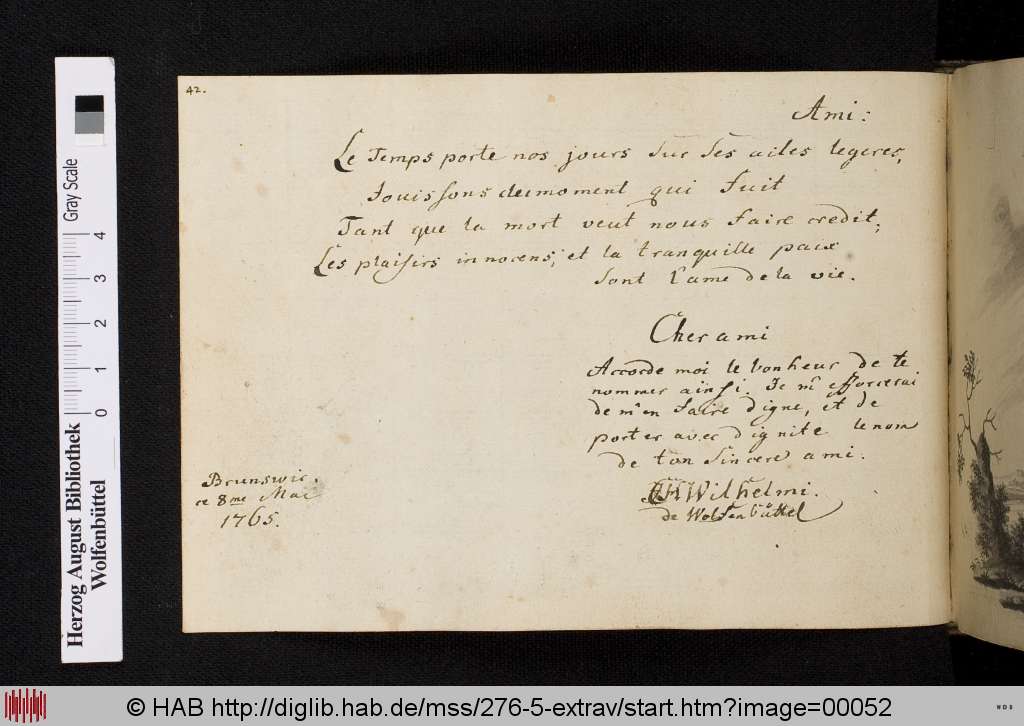 42.
Ami:
Le Temps porte nos jours sur ses ailes legeres,
Jouissons du moment qui fuit
Tant que la mort veut nous faire credit;
Les plaisirs innocens, et la tranquille paix
sont l'ame de la vie.
Cher ami
Accorde moi le bonheur de te
nommer ainsi. Je m'efforcerai
de m'en faire digne, et de
porter avec dignite le nom
de ton sincere ami.
Wilhelmi.
de Wolfenbüttel
Brunswic.
ce 8me Mai
1765.
Herzog August Bibliothek
Wolfenbüttel
0 1 2 3 4
Gray Scale
© HAB http://diglib.hab.de/mss/276-5-extrav/start.htm?image=00052
WDB